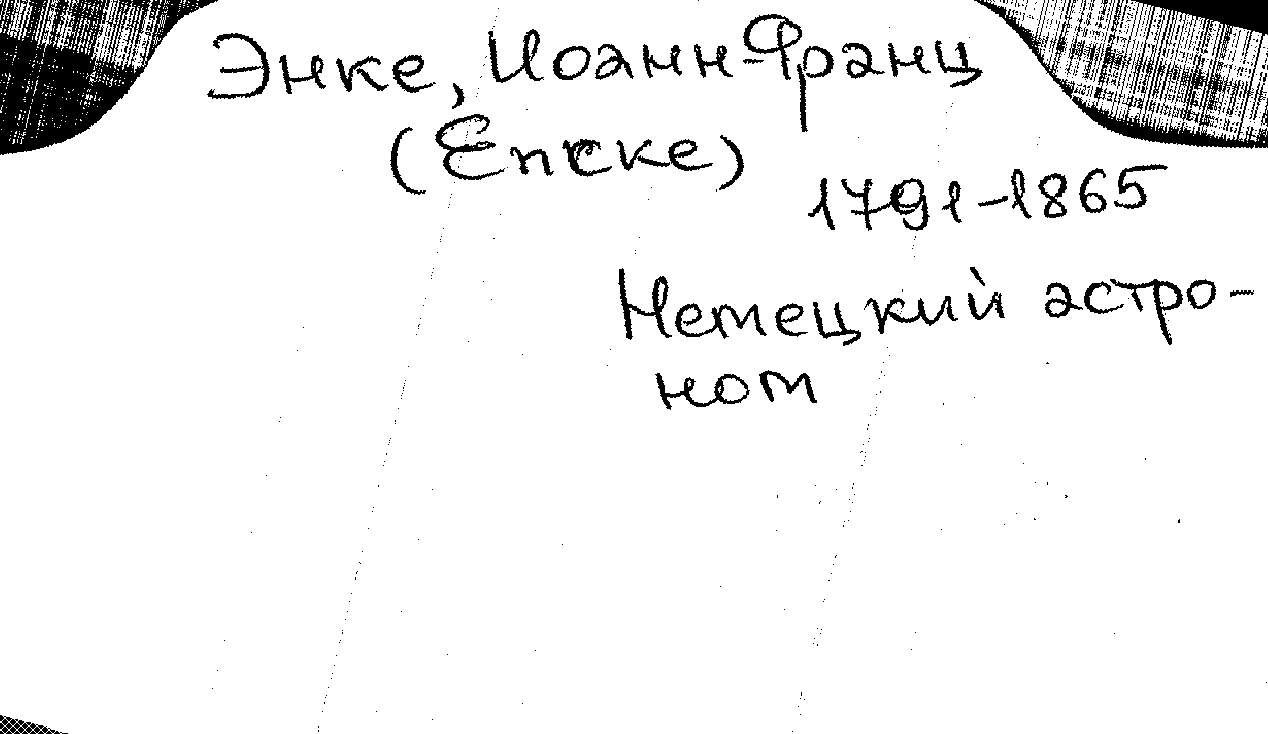 Энке, Иоанн-Франц
(Encke)
1791-1865
Немецкий астро-
ном